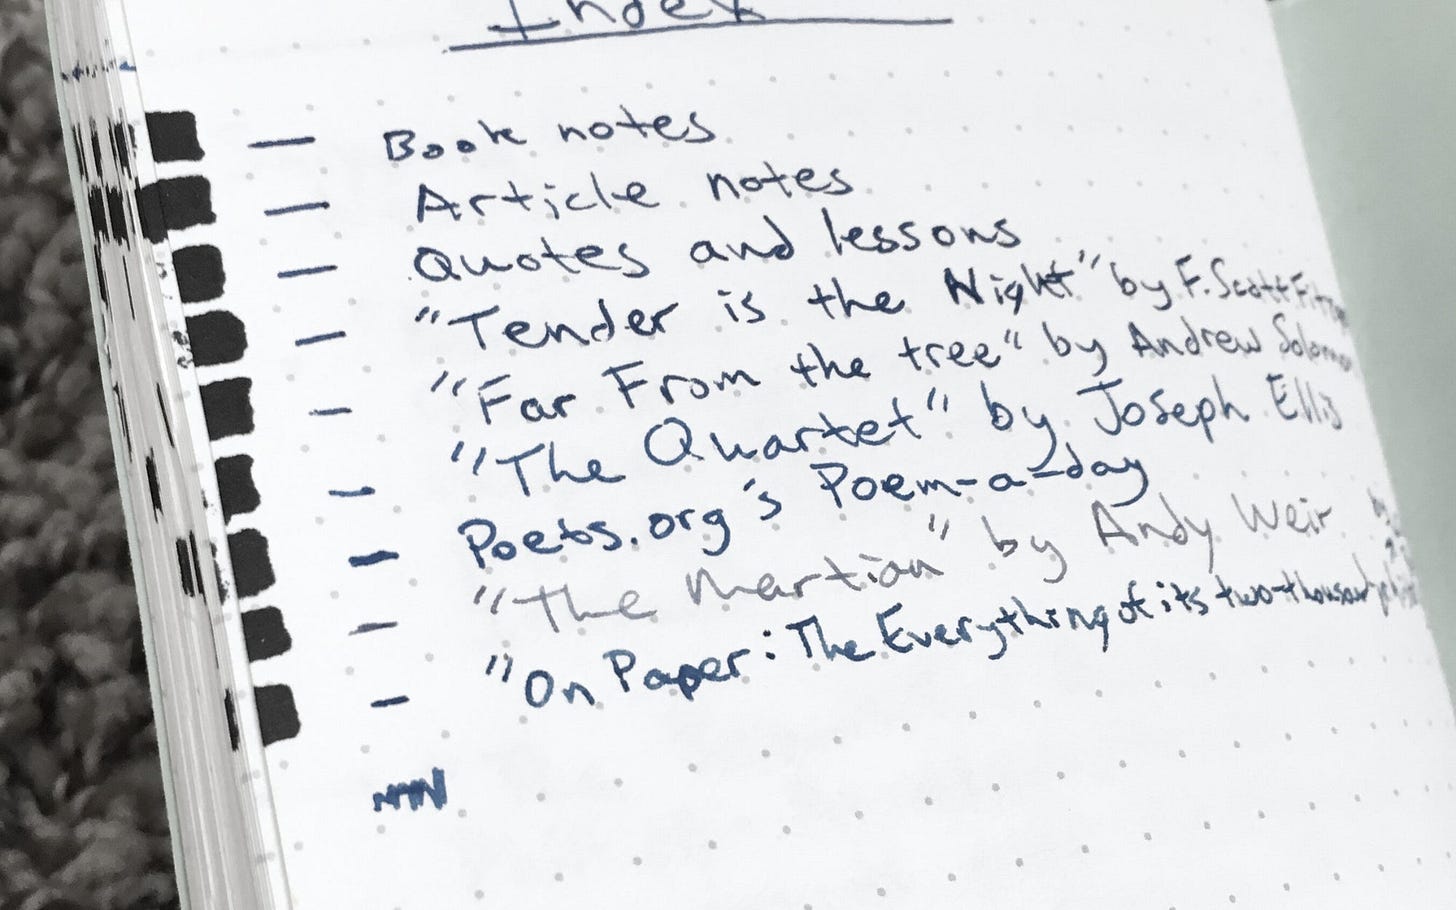 Index
Book notes
Article notes
Quotes and lessons
"Tender is the Night" by F. Scott
"Far From the tree" by Andrew Solomon
"The Quartet" by Joseph Ellis
Poets.org's Poem-a-day
"The Martian" by Andy Weir
"On Paper: The Everything of its two-thousand